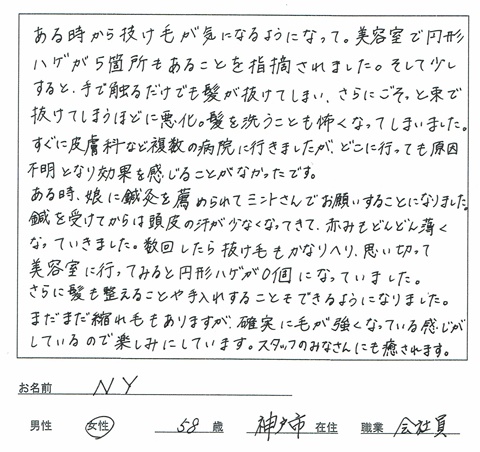 ある時から抜け毛が気になるようになって。美容室で円形
ハゲが5箇所もあることを指摘されました。そして少し
すると、手で触るだけでも髪が抜けてしまい、さらにごそっと束で
抜けてしまうほどに悪化。髪を洗うことも怖くなってしまいました。
すぐに皮膚科など複数の病院に行きましたが、どこに行っても原因
不明となり効果を感じることがなかったです。
ある時、娘に鍼灸を薦められてミントさんでお願いすることになりました。
鍼を受けてからは頭皮の汗が少なくなってきて、赤みもどんどん薄く
なっていきました。数回したら抜け毛もかなりヘり、思い切って
美容室に行ってみると円形ハゲが0個になっていました。
さらに髪も整えることや手入れすることもできるようになりました。
まだまだ縮れ毛もありますが、確実に毛が強くなっている感じが
しているので楽しみにしています。スタッフのみなさんにも癒されます。
お名前 NY
男性 女性 58 歳 神戸市 在住 職業 会社員